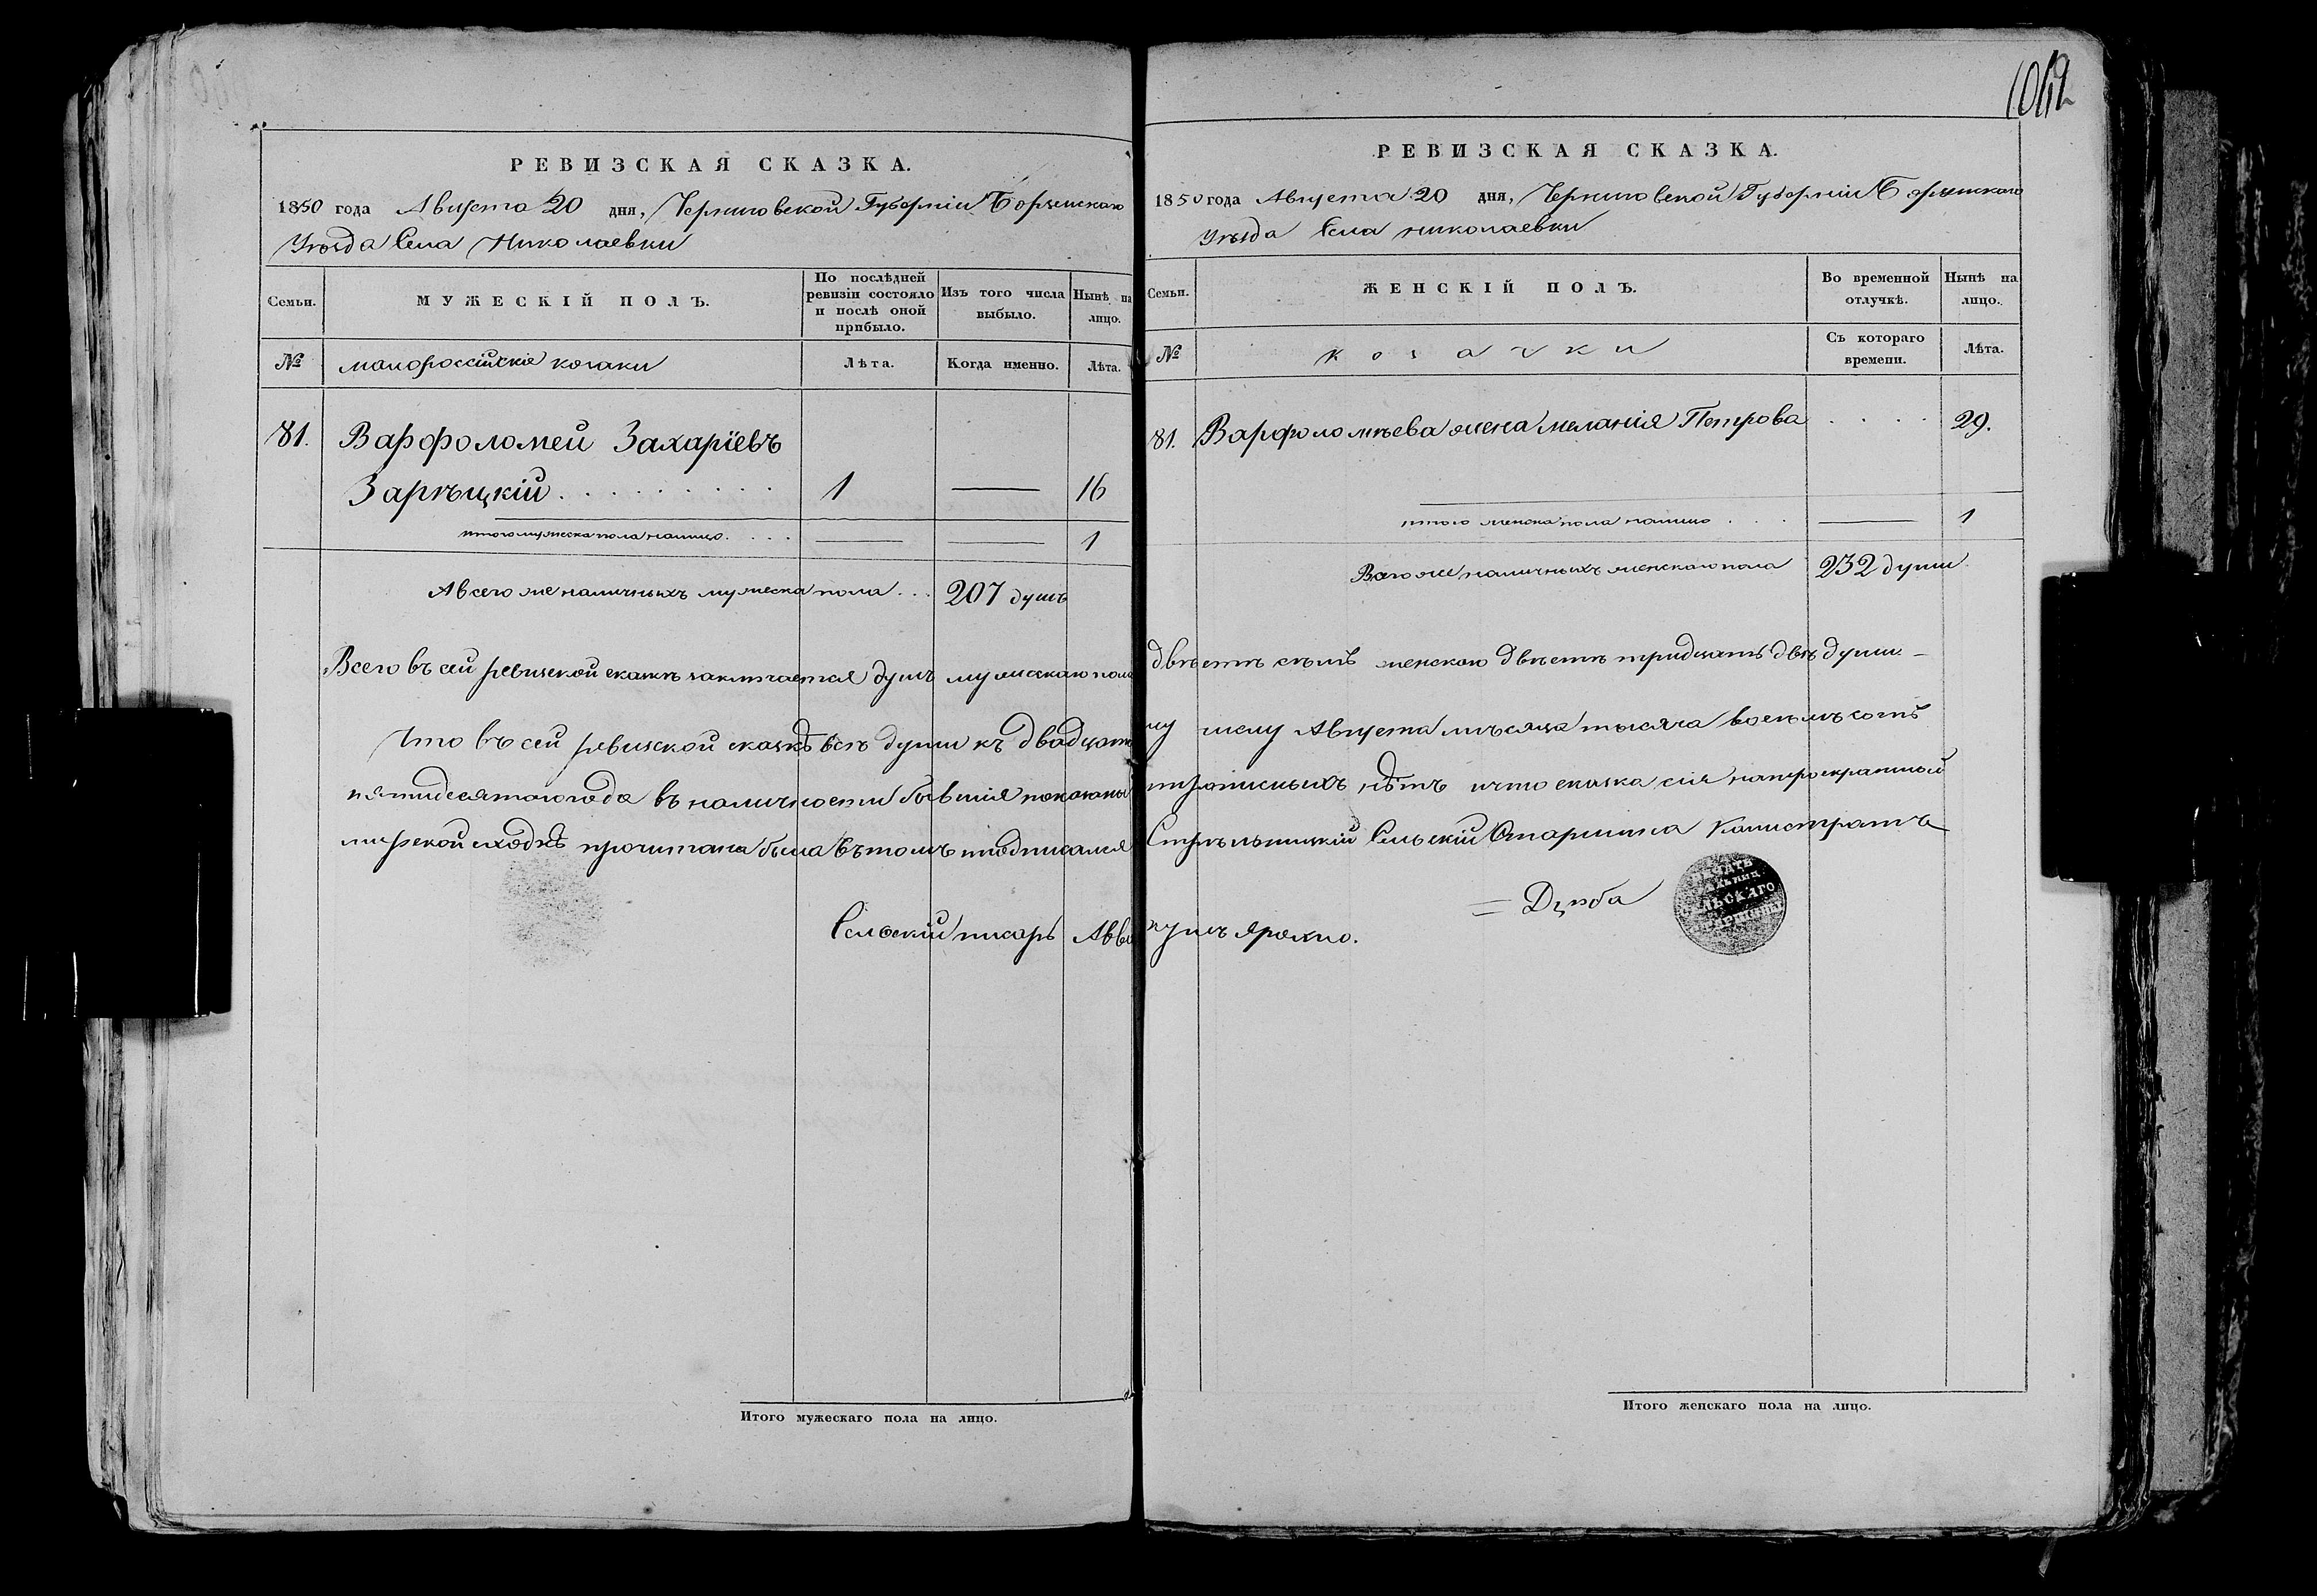 РЕВИЗСКАЯ СКАЗКА.
1850 года Августа 20 дня, Черниговской Губерніи Борзенскаго
Уѣзда Села Николаевки
Семьи.
МУЖЕСКІЙ ПОЛЪ.
По послѣдней ревизіи состояло и послѣ оной прибыло.
Изъ того числа выбыло.
Нынѣ на лицо.
№
малороссійскіе козаки
Лѣта.
Когда именно.
Лѣта.
81. Варфоломей Захаріевъ
Зарѣцкій . . . . . . . . . 1 — 16
итого мужеска пола налицо . . . . — — 1
А всего же наличныхъ мужеска пола . . . 207 душъ
РЕВИЗСКАЯ СКАЗКА.
1850 года Августа 20 дня, Черниговской Губерніи Борзенскаго
Уѣзда Села николаевки
Семьи.
ЖЕНСКІЙ ПОЛЪ.
Во временной отлучкѣ.
Нынѣ на лицо.
№
козачки
Съ котораго времени.
Лѣта.
81. Варфоломѣева жена меланія Петрова . . . . 29.
итого женска пола налицо . . . — 1
Всего же наличныхъ женскаго пола 232 души
Всего въ сей ревизской сказкѣ заключается душъ мужескаго пола двѣстѣ семь женскаго двѣстѣ тридцать двѣ души —
Что въ сей ревизской сказкѣ всѣ души къ двадцатому числу Августа мѣсяца тысяча восемъ сотъ
пятидесятого года въ наличности бывшія показаны и прописныхъ нѣтъ и что сказка сія на троекратной
мирской сходкѣ прочитана была въ томъ подписался Стрѣльницкій Сельскій Старшина Калистратъ
= Дзюба
Сельскій писарь Аввакумъ ярохно.
Итого мужескаго пола на лицо.
Итого женскаго пола на лицо.